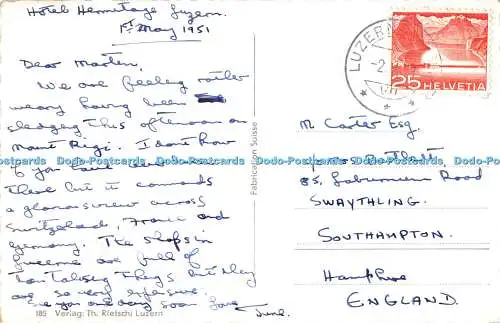 Hotel Hermitage Luzern.
1st May 1951
Dear Martin,
We are feeling rather
weary having been
sledging this afternoon on
Mount Rigi. I don't know
if you have been
there but it commands
a glorious view across
Switzerland, France and
Germany. The shops in
Lucerne are full of
tantalising things but they
are so very expensive.
See you very soon love
June.
185 Verlag: Th. Rietschi Luzern
Fabrication Suisse
LUZERN
-2.
25 HELVETIA
M Carter Esq.
85, Road
SWAYTHLING
SOUTHAMPTON.
Hampshire
ENGLAND.
Dodo-Postcards Dodo-Postcards Dodo-Postcards Dodo-Postcards